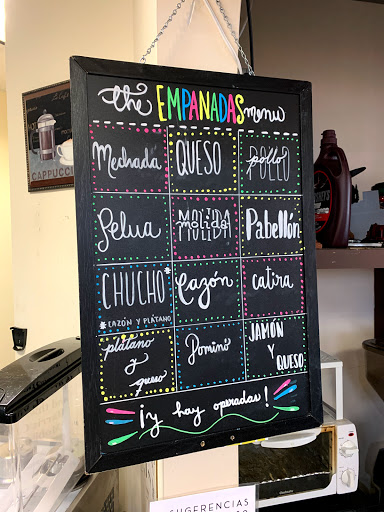 the EMPANADAS menu
Mechada QUESO pollo
Pelua MOLIDA Pabellón
CHUCHO* Cazón catira
*CAZÓN Y PLÁTANO
plátano y queso Dominó JAMÓN Y QUESO
¡y hay operadas!
CAPPUCC
SUGERENCIAS